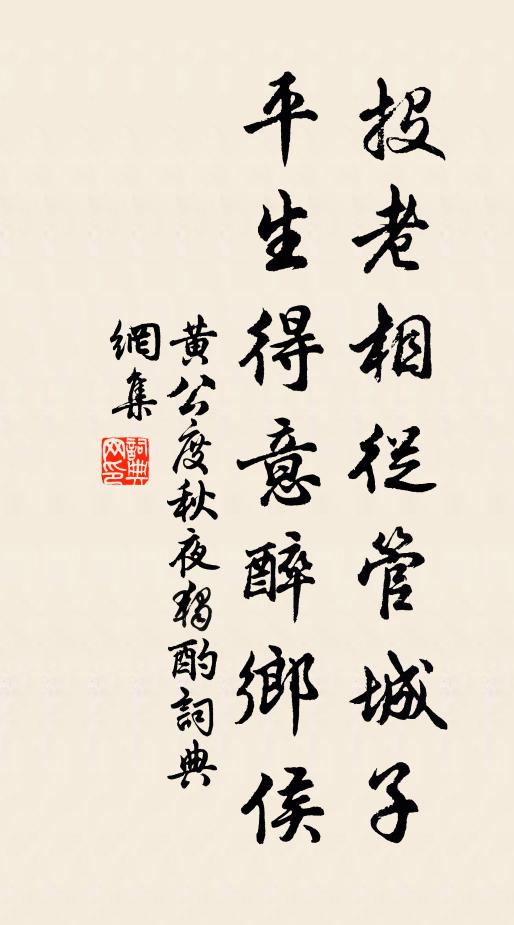 投老相從管城子
平生得意醉鄉侯
黃公度秋夜獨酌詞典
網集
詞典網印